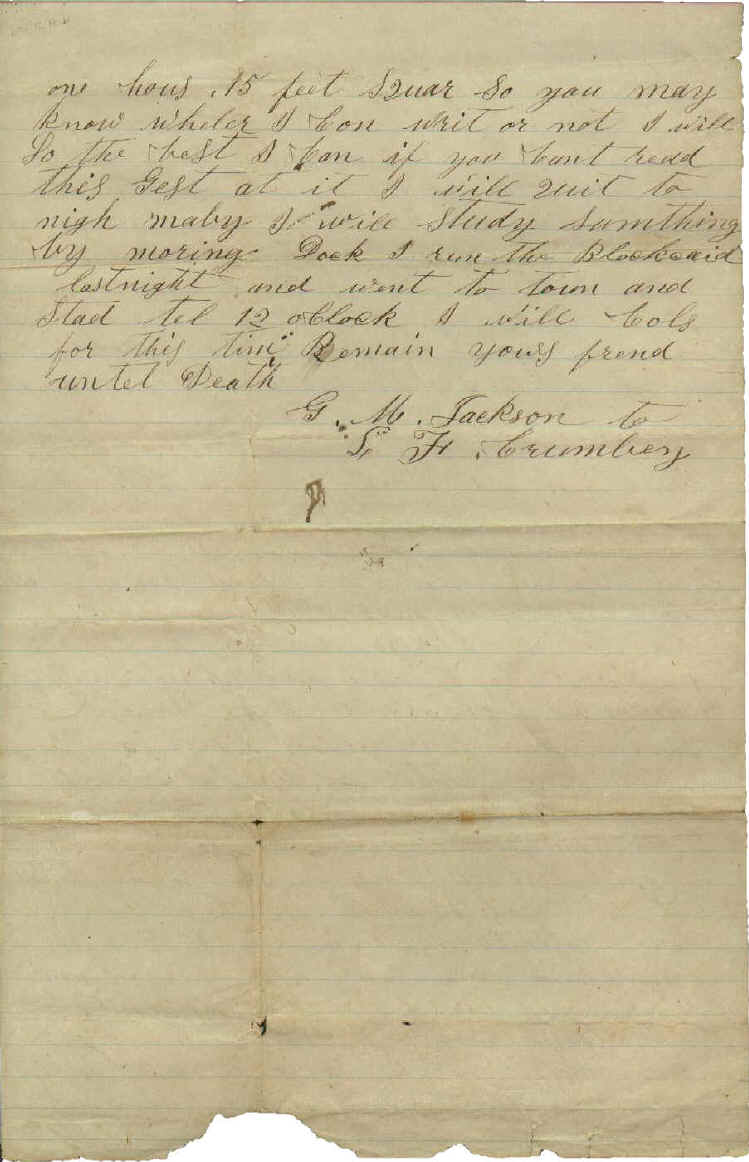 one hous 15 feet Squar So you may
know wheler I Can writ or not I will
Do the best I Can if you Cant read
this Gest at it I will Quit to
nigh maby I will Study Sumthing
by moring Dock I run the Blockaid
lastnight and went to town and
Stad tel 12 oClock I will Cols
for this time Remain yours frend
untel Death
G. M. Jackson to
F Crumbey